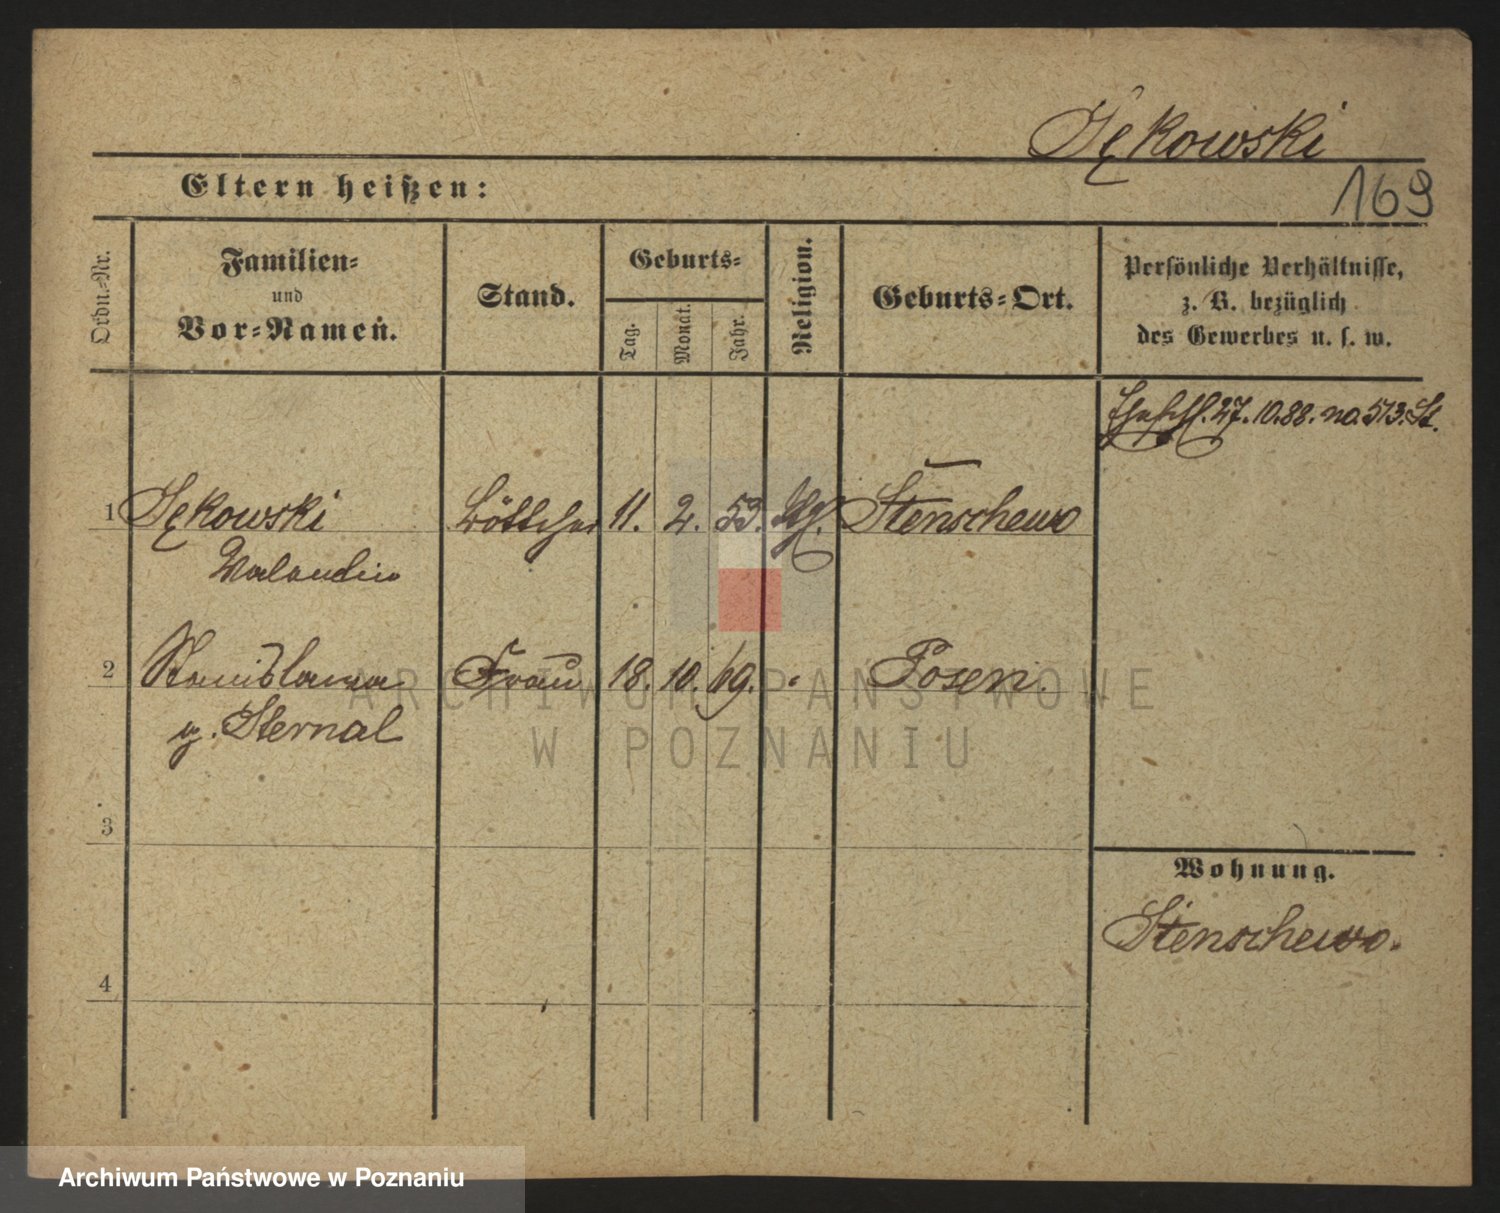 Jękowski
169
Eltern heißen:
Ordn.-Nr.
Familien-
und
Vor-Namen.
Stand.
Geburts-
Tag.
Monat.
Jahr.
Religion.
Geburts-Ort.
Persönliche Verhältnisse,
z. B. bezüglich
des Gewerbes u. s. w.
27. 10. 88. no. 513. St.
1 Jękowski Böttcher 11. 2. 53. Kth. Stenschewo
Valentin
2 Stanislawa Frau 18. 10. 69. " Posen.
g. Sternal
3
4
Wohnung.
Stenschewo.
ARCHIWUM PAŃSTWOWE
W POZNANIU
Archiwum Państwowe w Poznaniu